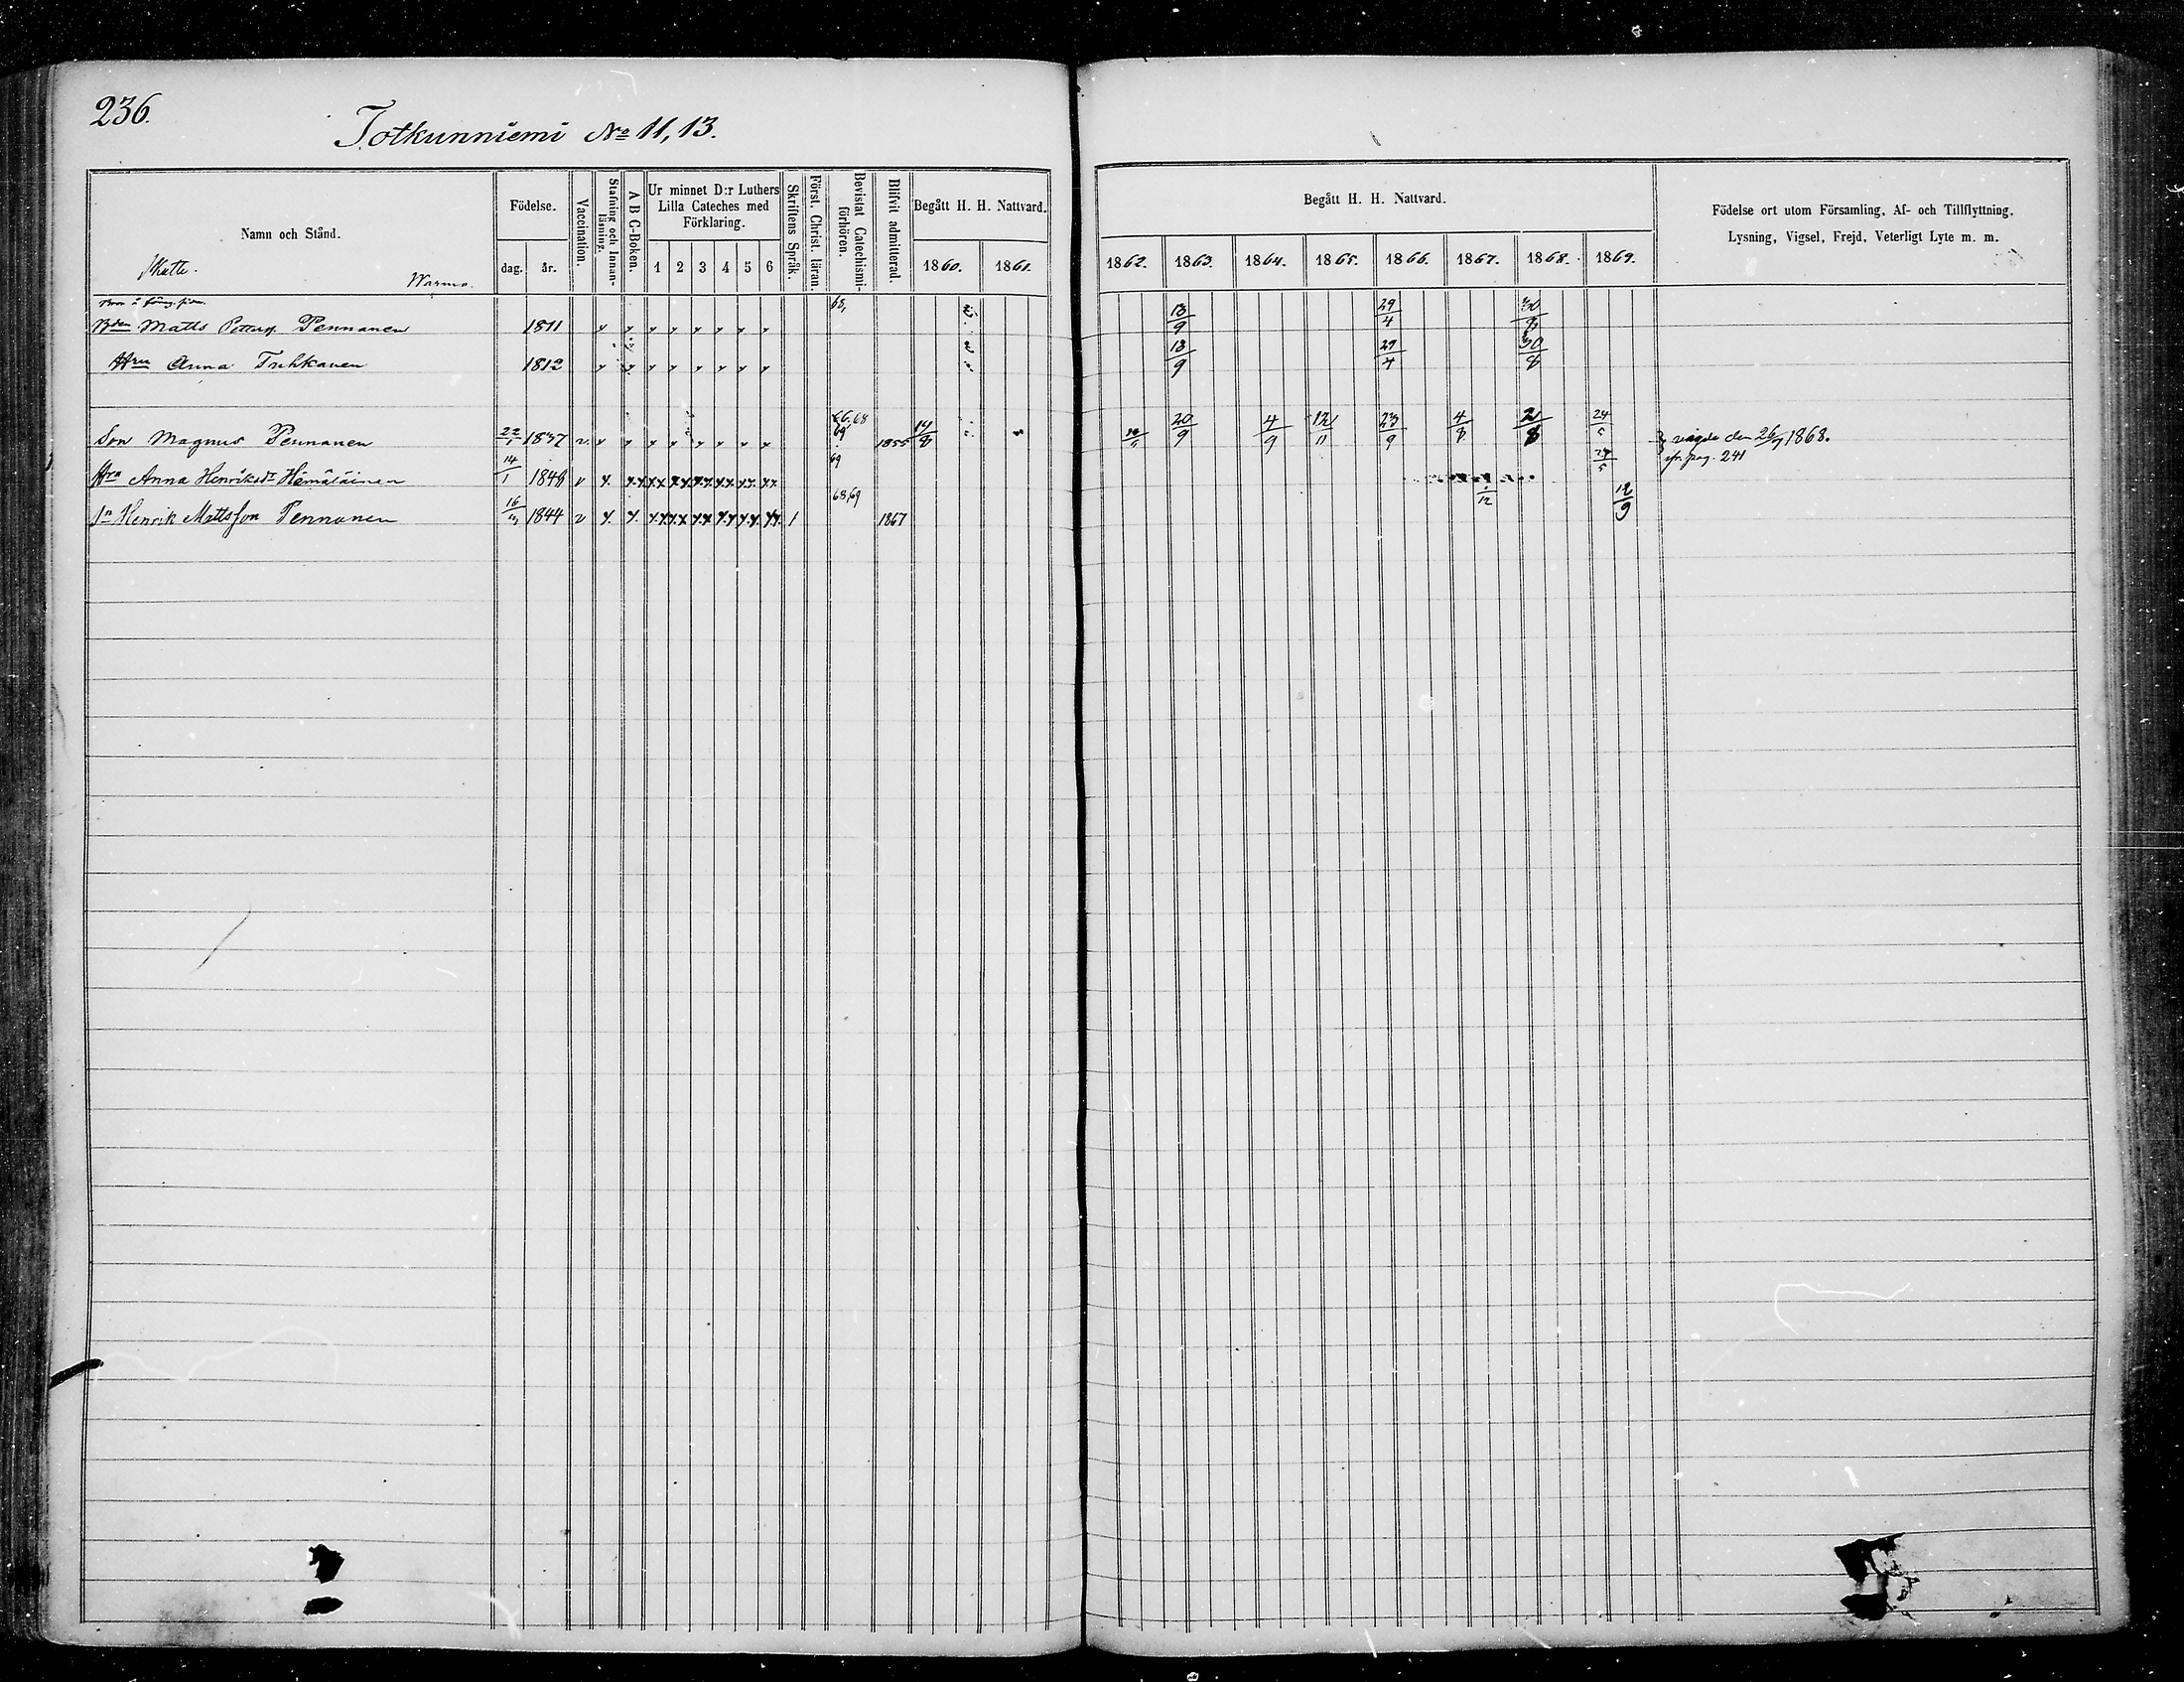 236.
Totkunniemi No 11, 13.
Namn och Stånd.
Skatte.
Warmo.
Födelse.
dag. år.
Vaccination.
Stafning och Innan-läsning.
A B C-Boken.
Ur minnet D:r Luthers Lilla Cateches med Förklaring.
1 2 3 4 5 6
Skriftens Språk.
Först. Christ. läran.
Bevistat Catechismi-förhören.
Blifvit admitterad.
Begått H. H. Nattvard.
1860. 1861.
Begått H. H. Nattvard.
1862. 1863. 1864. 1865. 1866. 1867. 1868. 1869.
Födelse ort utom Församling, Af- och Tillflyttning,
Lysning, Vigsel, Frejd, Veterligt Lyte m. m.
Bden Matts Pennanen 1811 68, 13/9 29/4 30/8
Hru Anna Tuhkanen 1812 13/9 29/4 30/8
Son Magnus Pennanen 22/1 1837 v 66,68 69 1855 14/8 20/9 4/9 12/11 23/9 4/8 2/8 24/5 vigde den 26/7 1868.
Hru Anna Henriksdr Hämäläinen 14/1 1848 v 69 24/5 pag. 241
Sn Henrik Mattsson Pennanen 1844 v 68,69 1867 1/12 12/9